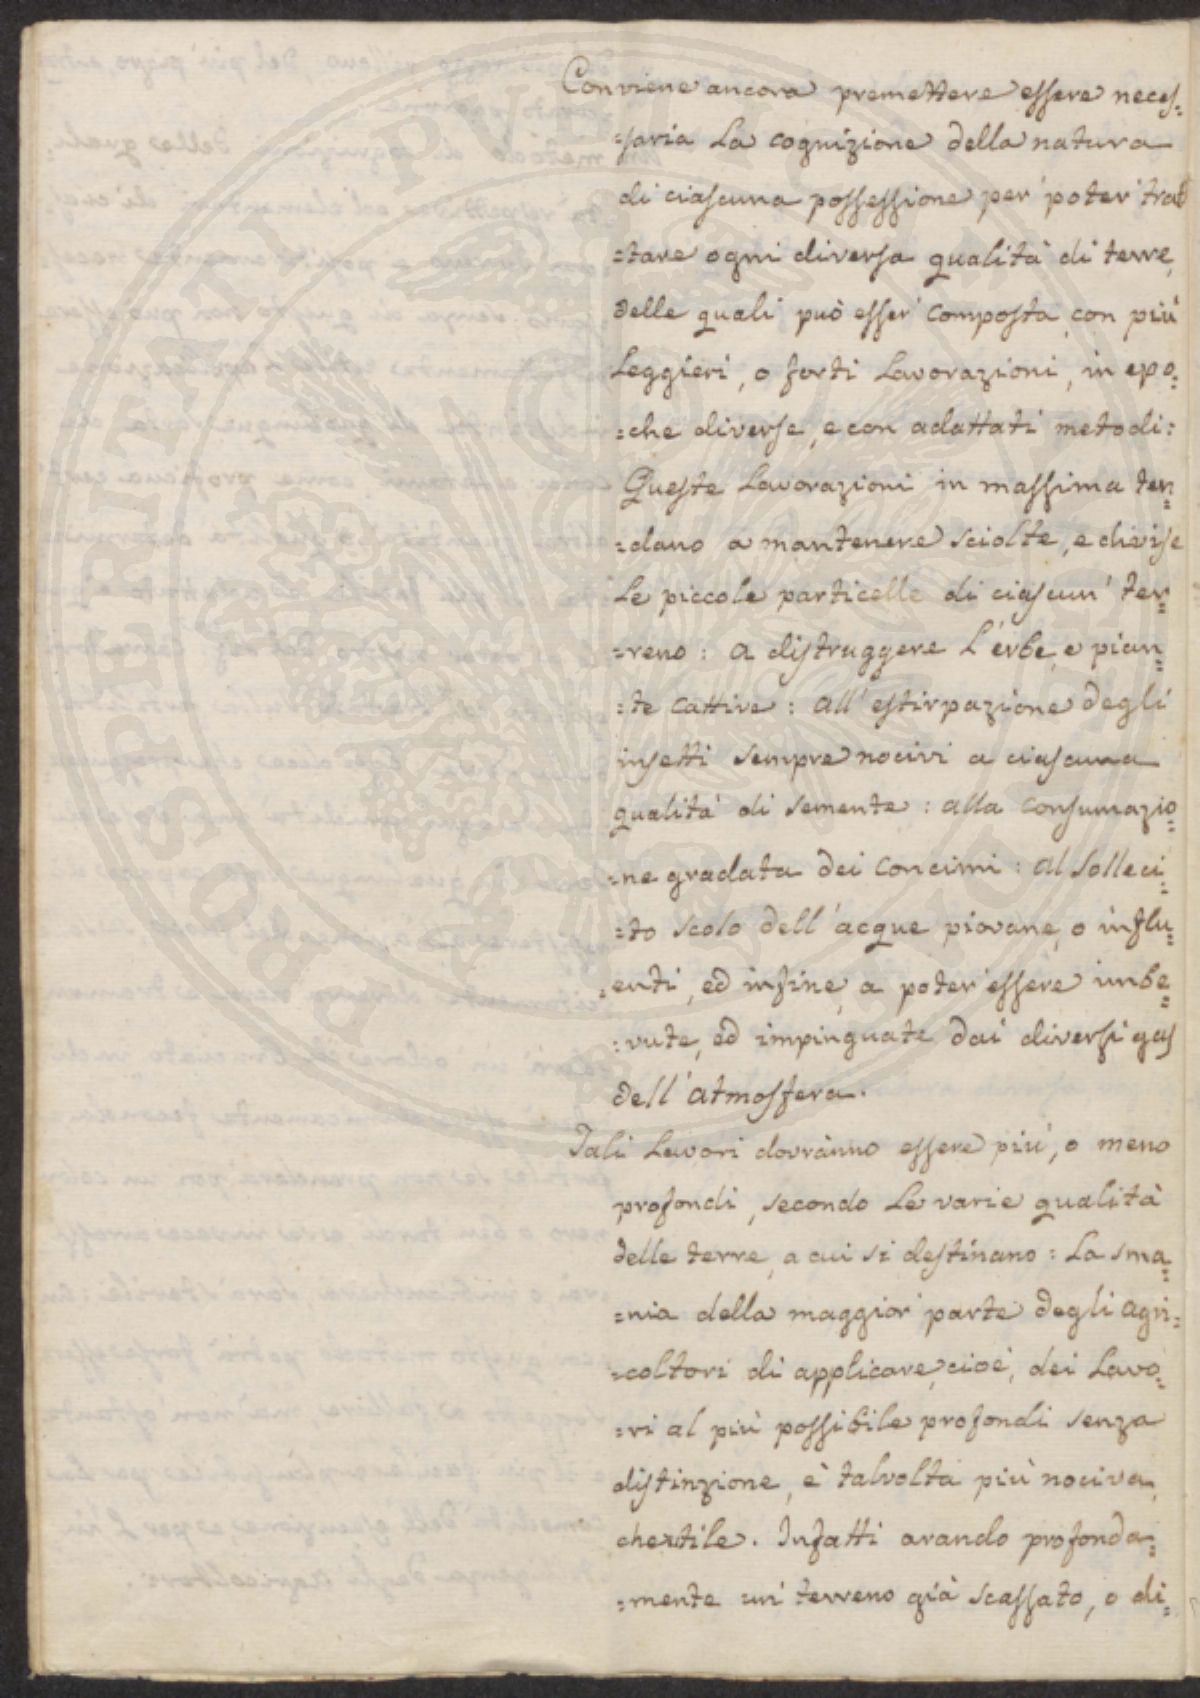 Conviene ancora premettere essere neces=
=saria La cognizione della natura
di ciascuna possessione per poter trat
=tare ogni diversa qualità di terre,
delle quali può esser composta, con più
Leggieri, o forti Lavorazioni, in epo=
=che diverse, e con adattati metodi:
Queste Lavorazioni in massima ten=
=dano a mantenere sciolte, e divise
Le piccole particelle di ciascun' ter=
=reno: a distruggere L'erbe, e pian=
=te cattive: all'estirpazione degli
insetti sempre nocivi a ciascuna
qualità di semente: alla consumazio=
=ne gradata dei Concimi: al solleci=
=to scolo dell'acque piovane, o influ=
=enti, ed infine, a poter essere imbe=
=vute, ed impinguate dai diversi gas
dell'atmosfera.
Tali Lavori dovranno essere più, o meno
profondi, secondo Le varie qualità
delle terre, a cui si destinano: La sma=
=nia della maggior parte degli agri=
=coltori di applicare, cioè, dei Lavo=
=ri al più possibile profondi senza
distinzione, è talvolta più nociva,
che utile. Infatti arando profonda=
=mente un' terreno già scassato, o di=
PROSPERITATI PUBLICAE